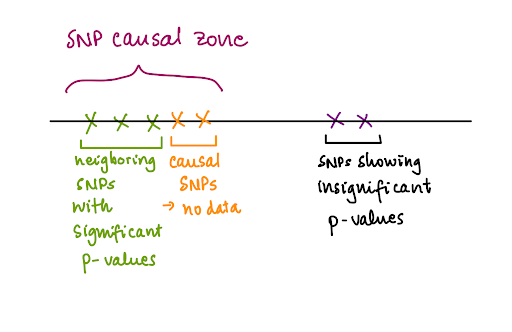 SNP causal zone
neighboring
SNPs
with
significant
p-values
causal
SNPs
→ no data
SNPs showing
insignificant
p-values